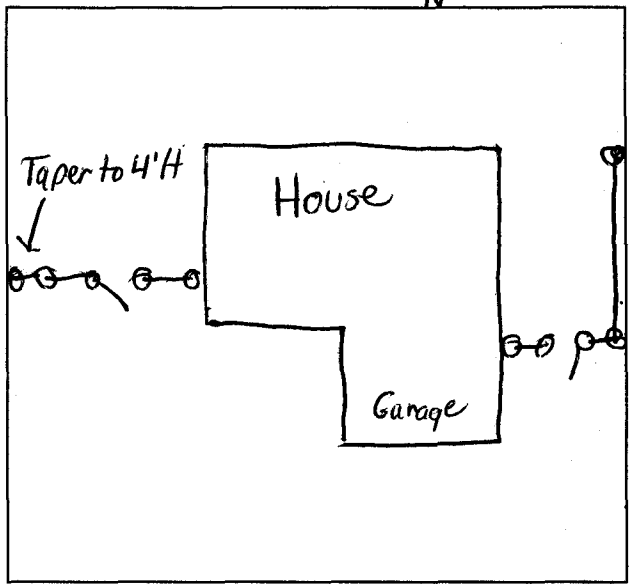 Taper to 4'H
House
Garage